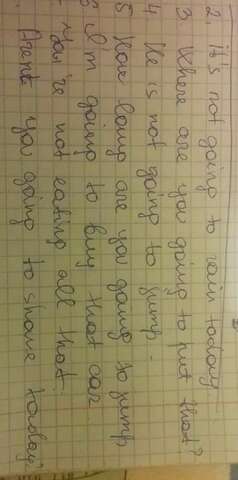 2. it's not going to rain today
3 Where are you going to put that?
4 He is not going to jump.
5 How long are you going to jump
6 I'm going to buy that car
You're not eating all that.
Arent you going to shave today?